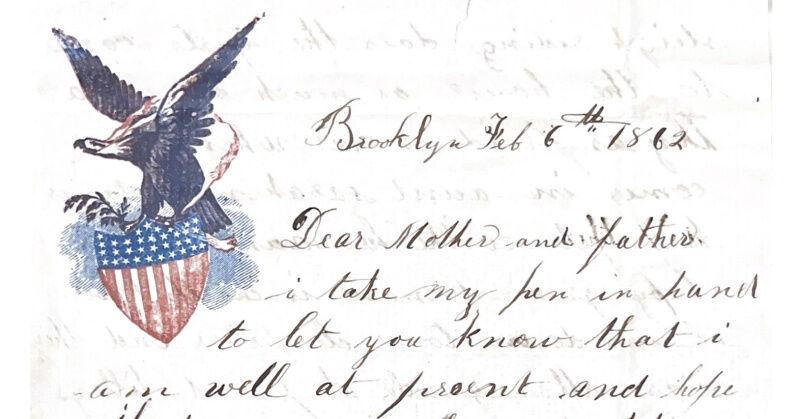 Brooklyn Feb 6th 1862
Dear Mother and father.
i take my pen in hand
to let you know that i
am well at precent and hope